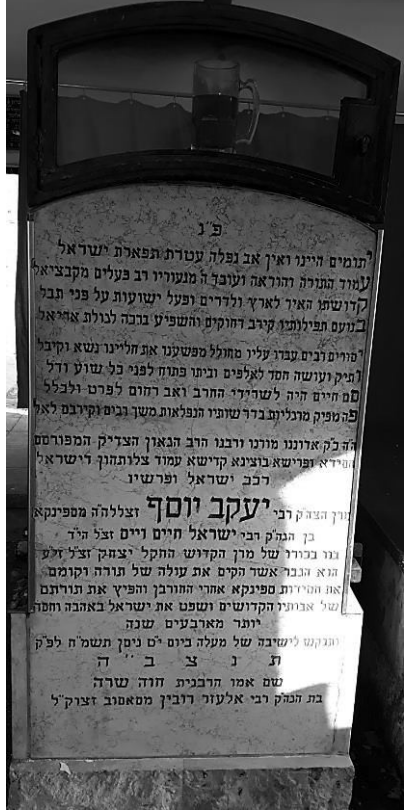 פ״נ
יתומים היינו ואין אב נפלה עטרת תפארת ישראל
עמוד התורה והוראה ועובד ה׳ מנעוריו רב פעלים מקבציאל
קדושתו האיר לארץ ולדרים ופעל ישועות על פני תבל
בנועם תפילותיו קירב רחוקים והשפיע ברכה לגולת אריאל
יסורים רבים עברו עליו מחולל מפשענו את חליינו נשא וקיבל
ותיק ועושה חסד לאלפים וביתו פתוח לפני כל שוע ודל
סם חיים היה לשרידי החרב ואב רחום לפרט ולכלל
פה מפיק מרגליות בדרשותיו הנפלאות משך רבים וקירבם לאל
ה״ה כ״ק אדוננו מורנו ורבנו הרב הגאון הצדיק המפורסם
חסידא ופרישא בוצינא קדישא עמוד צלותהון דישראל
רכב ישראל ופרשיו
מרן הצה״ק רבי יעקב יוסף זצללה״ה מספינקא
בן הגה״ק רבי ישראל חיים ווייס זצ״ל הי״ד
בנו בכורו של מרן הקדוש החקל יצחק זצ״ל זי״ע
הוא הגבר אשר הקים את עולה של תורה וקומם
את חסידות ספינקא אחרי החורבן והפיץ את תורתם
של אבותיו הקדושים ושפט את ישראל באהבה וחסד
יותר מארבעים שנה
ונתבקש לישיבה של מעלה ביום י״ט ניסן תשמ״ח לפ״ק
ת נ צ ב ״ ה
שם אמו הרבנית חוה שרה
בת הגה״ק רבי אלעזר רובין מסאסוב זצוק״ל